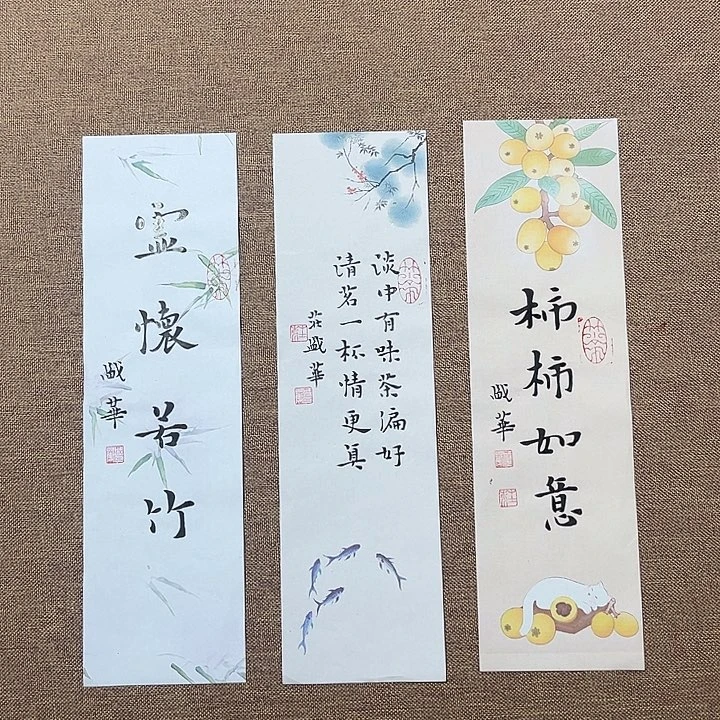 虚懷若竹
盛華
淡中有味茶偏好
清茗一杯情更真
莊盛華
柿柿如意
盛華